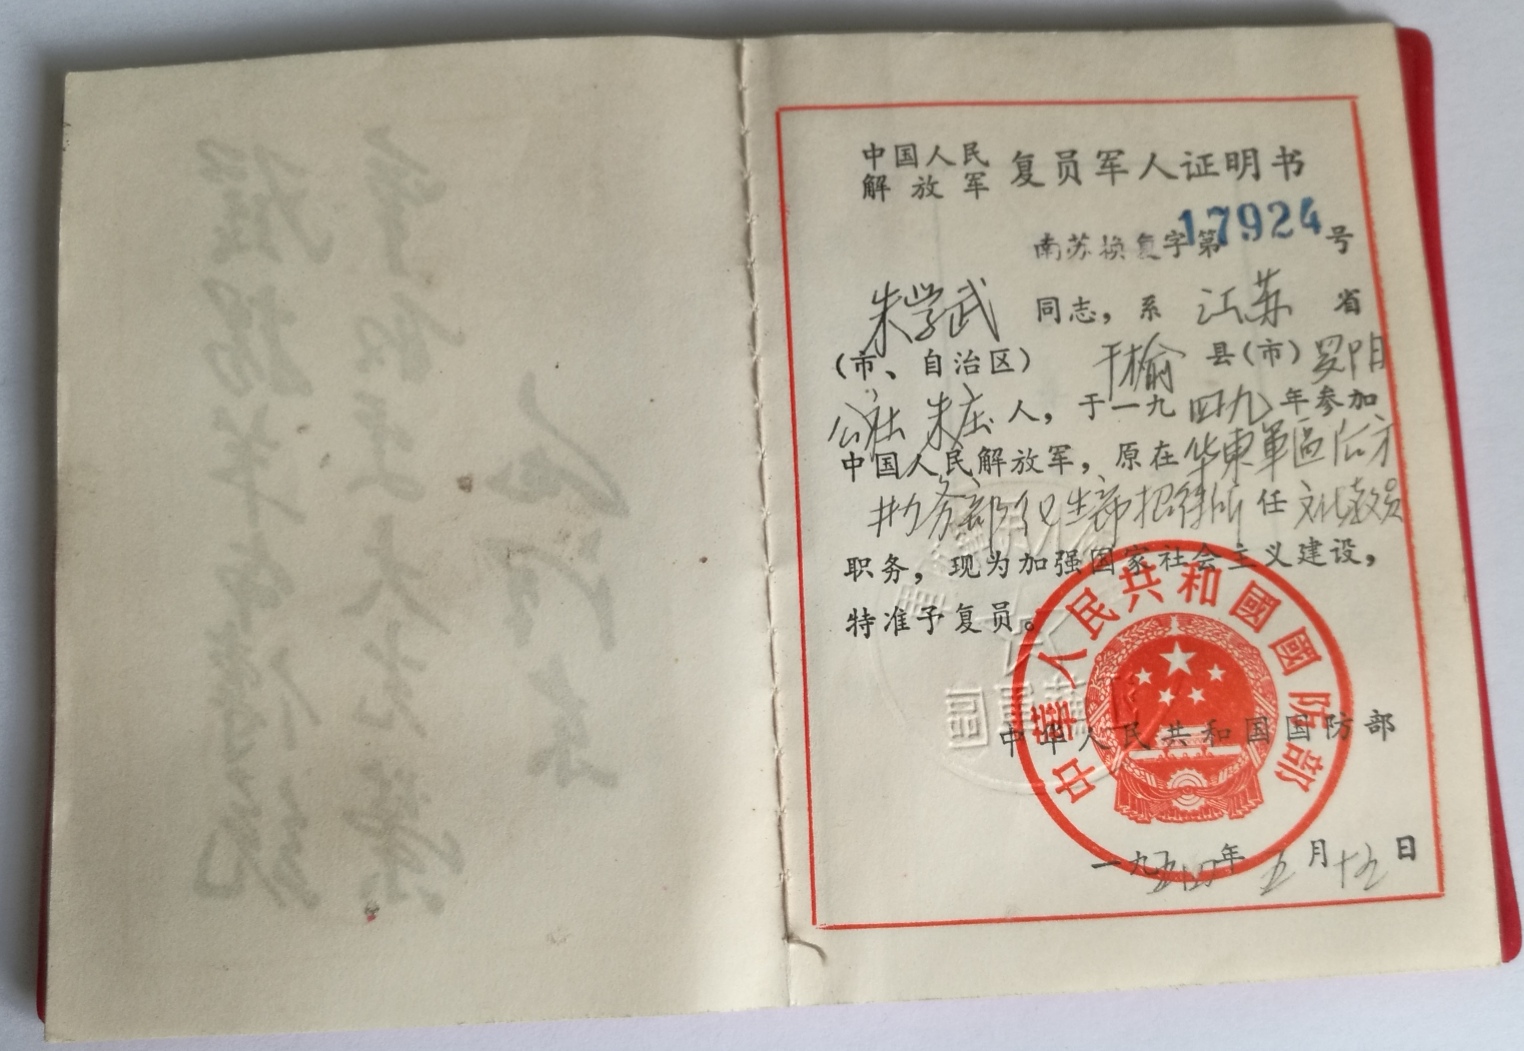 中国人民
解放军 复员军人证明书
南苏换复字第17924号
朱学武 同志，系 江苏 省
（市、自治区） 干榆 县（市） 罗阳
公社 朱庄 人，于一九 四九 年参加
中国人民解放军，原在 华東軍區后方
财务部 招待所 任 文化教员
职务，现为加强国家社会主义建设，
特准予复员。
中華人民共和國國防部
中华人民共和国国防部
一九五四年 五 月 十五 日